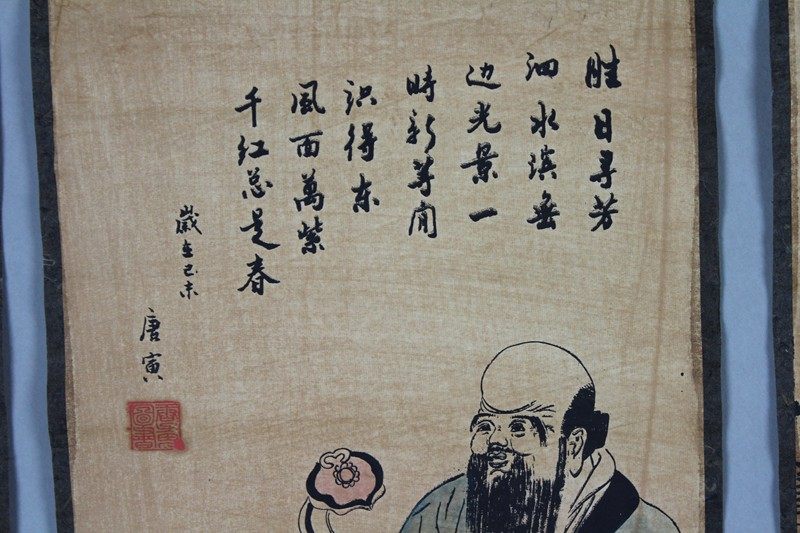 胜日寻芳
泗水滨無
边光景一
時新等閒
识得东
風面萬紫
千红总是春
歲在己未
唐寅